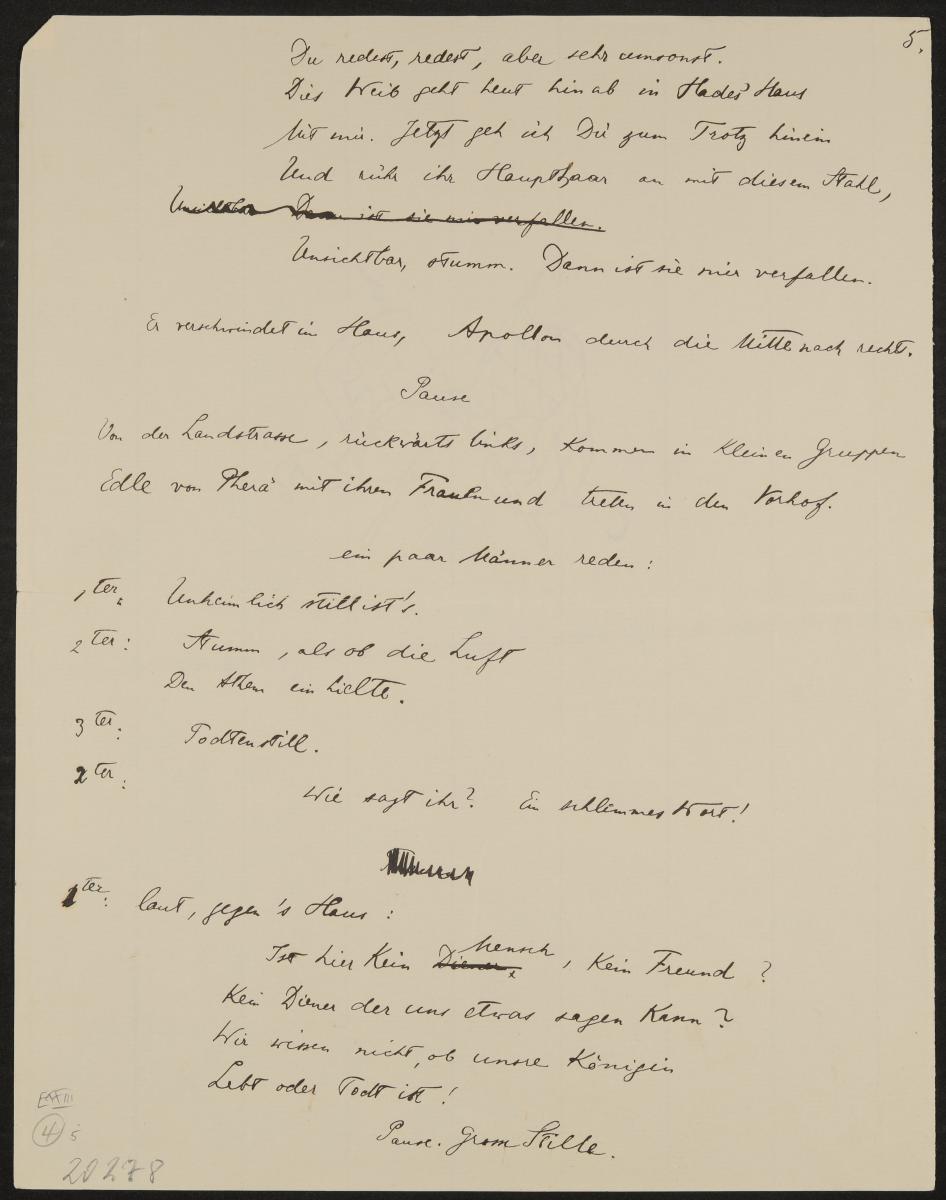 5.
Du redest, redest, aber sehr umsonst.
Dies Weib geht heut hinab in Hades' Haus
Mit mir. Jetzt geh ich Dir zum Trotz hinein
Und rühr ihr Haupthaar an mit diesem Stahl,
Unsichtbar Dann ist sie mir verfallen.
Unsichtbar, stumm. Dann ist sie mir verfallen.
Er verschwindet im Haus, Apollon durch die Mitte nach rechts.
Pause
Von der Landstrasse, rückwärts links, kommen in kleinen Gruppen
Edle von Pherä mit ihren Frauen und treten in den Vorhof.
ein paar Männer reden:
1ter: Unheimlich still ist's.
2ter: Stumm, als ob die Luft
Den Athem einhielte.
3ter: Todtenstill.
2ter:
Wie sagt ihr? Ein schlimmes Wort!
1ter: laut, gegen's Haus:
Ist hier kein Diener Mensch, kein Freund?
Kein Diener der uns etwas sagen kann?
Wir wissen nicht, ob unsre Königin
Lebt oder Todt ist!
Pause. Grosse Stille.
E XIII
4
20278